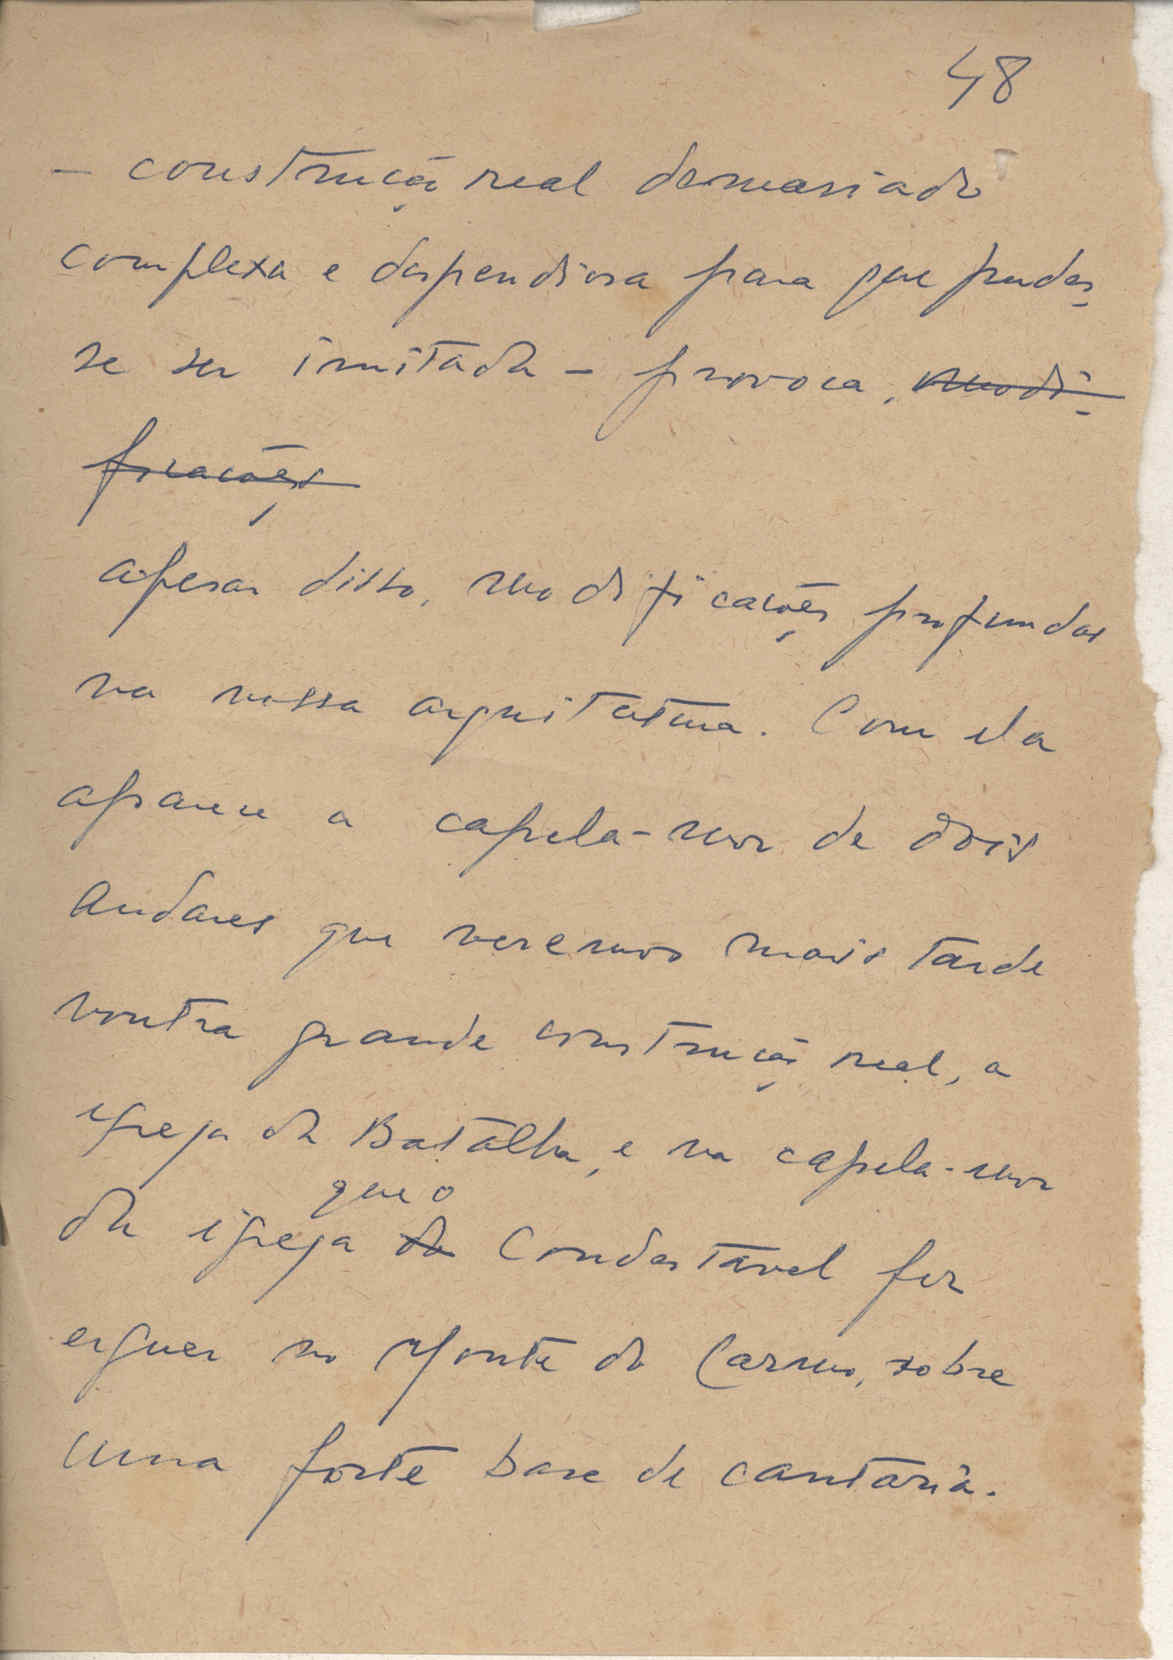 48
— construção real demasiado
complexa e dispendiosa para que pudes-
se ser imitada — provoca, modi-
ficações
apesar disso, modificações profundas
na nossa arquitetura. Com ela
aparece a capela-mor de dois
andares que veremos mais tarde
noutra grande construção real, a
igreja da Batalha, e na capela-mor
que o
da igreja do Condestável fez
erguer no Monte do Carmo, sobre
uma forte base de cantaria.